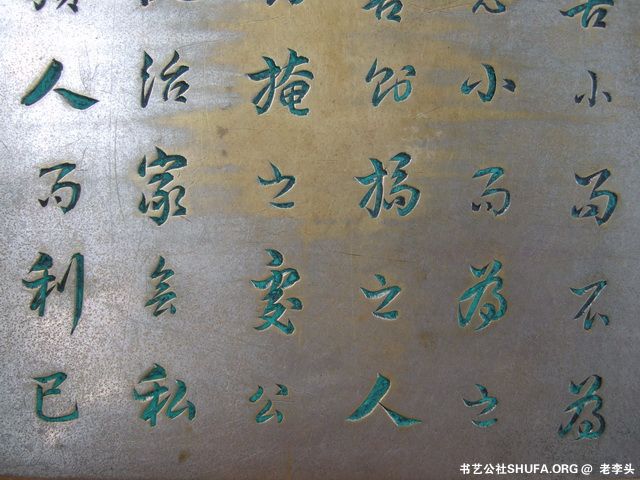 小而不為
小而為之
則揚之人
則掩之處公
治家無私
人而利己
书艺公社SHUFA.ORG @ 老李头